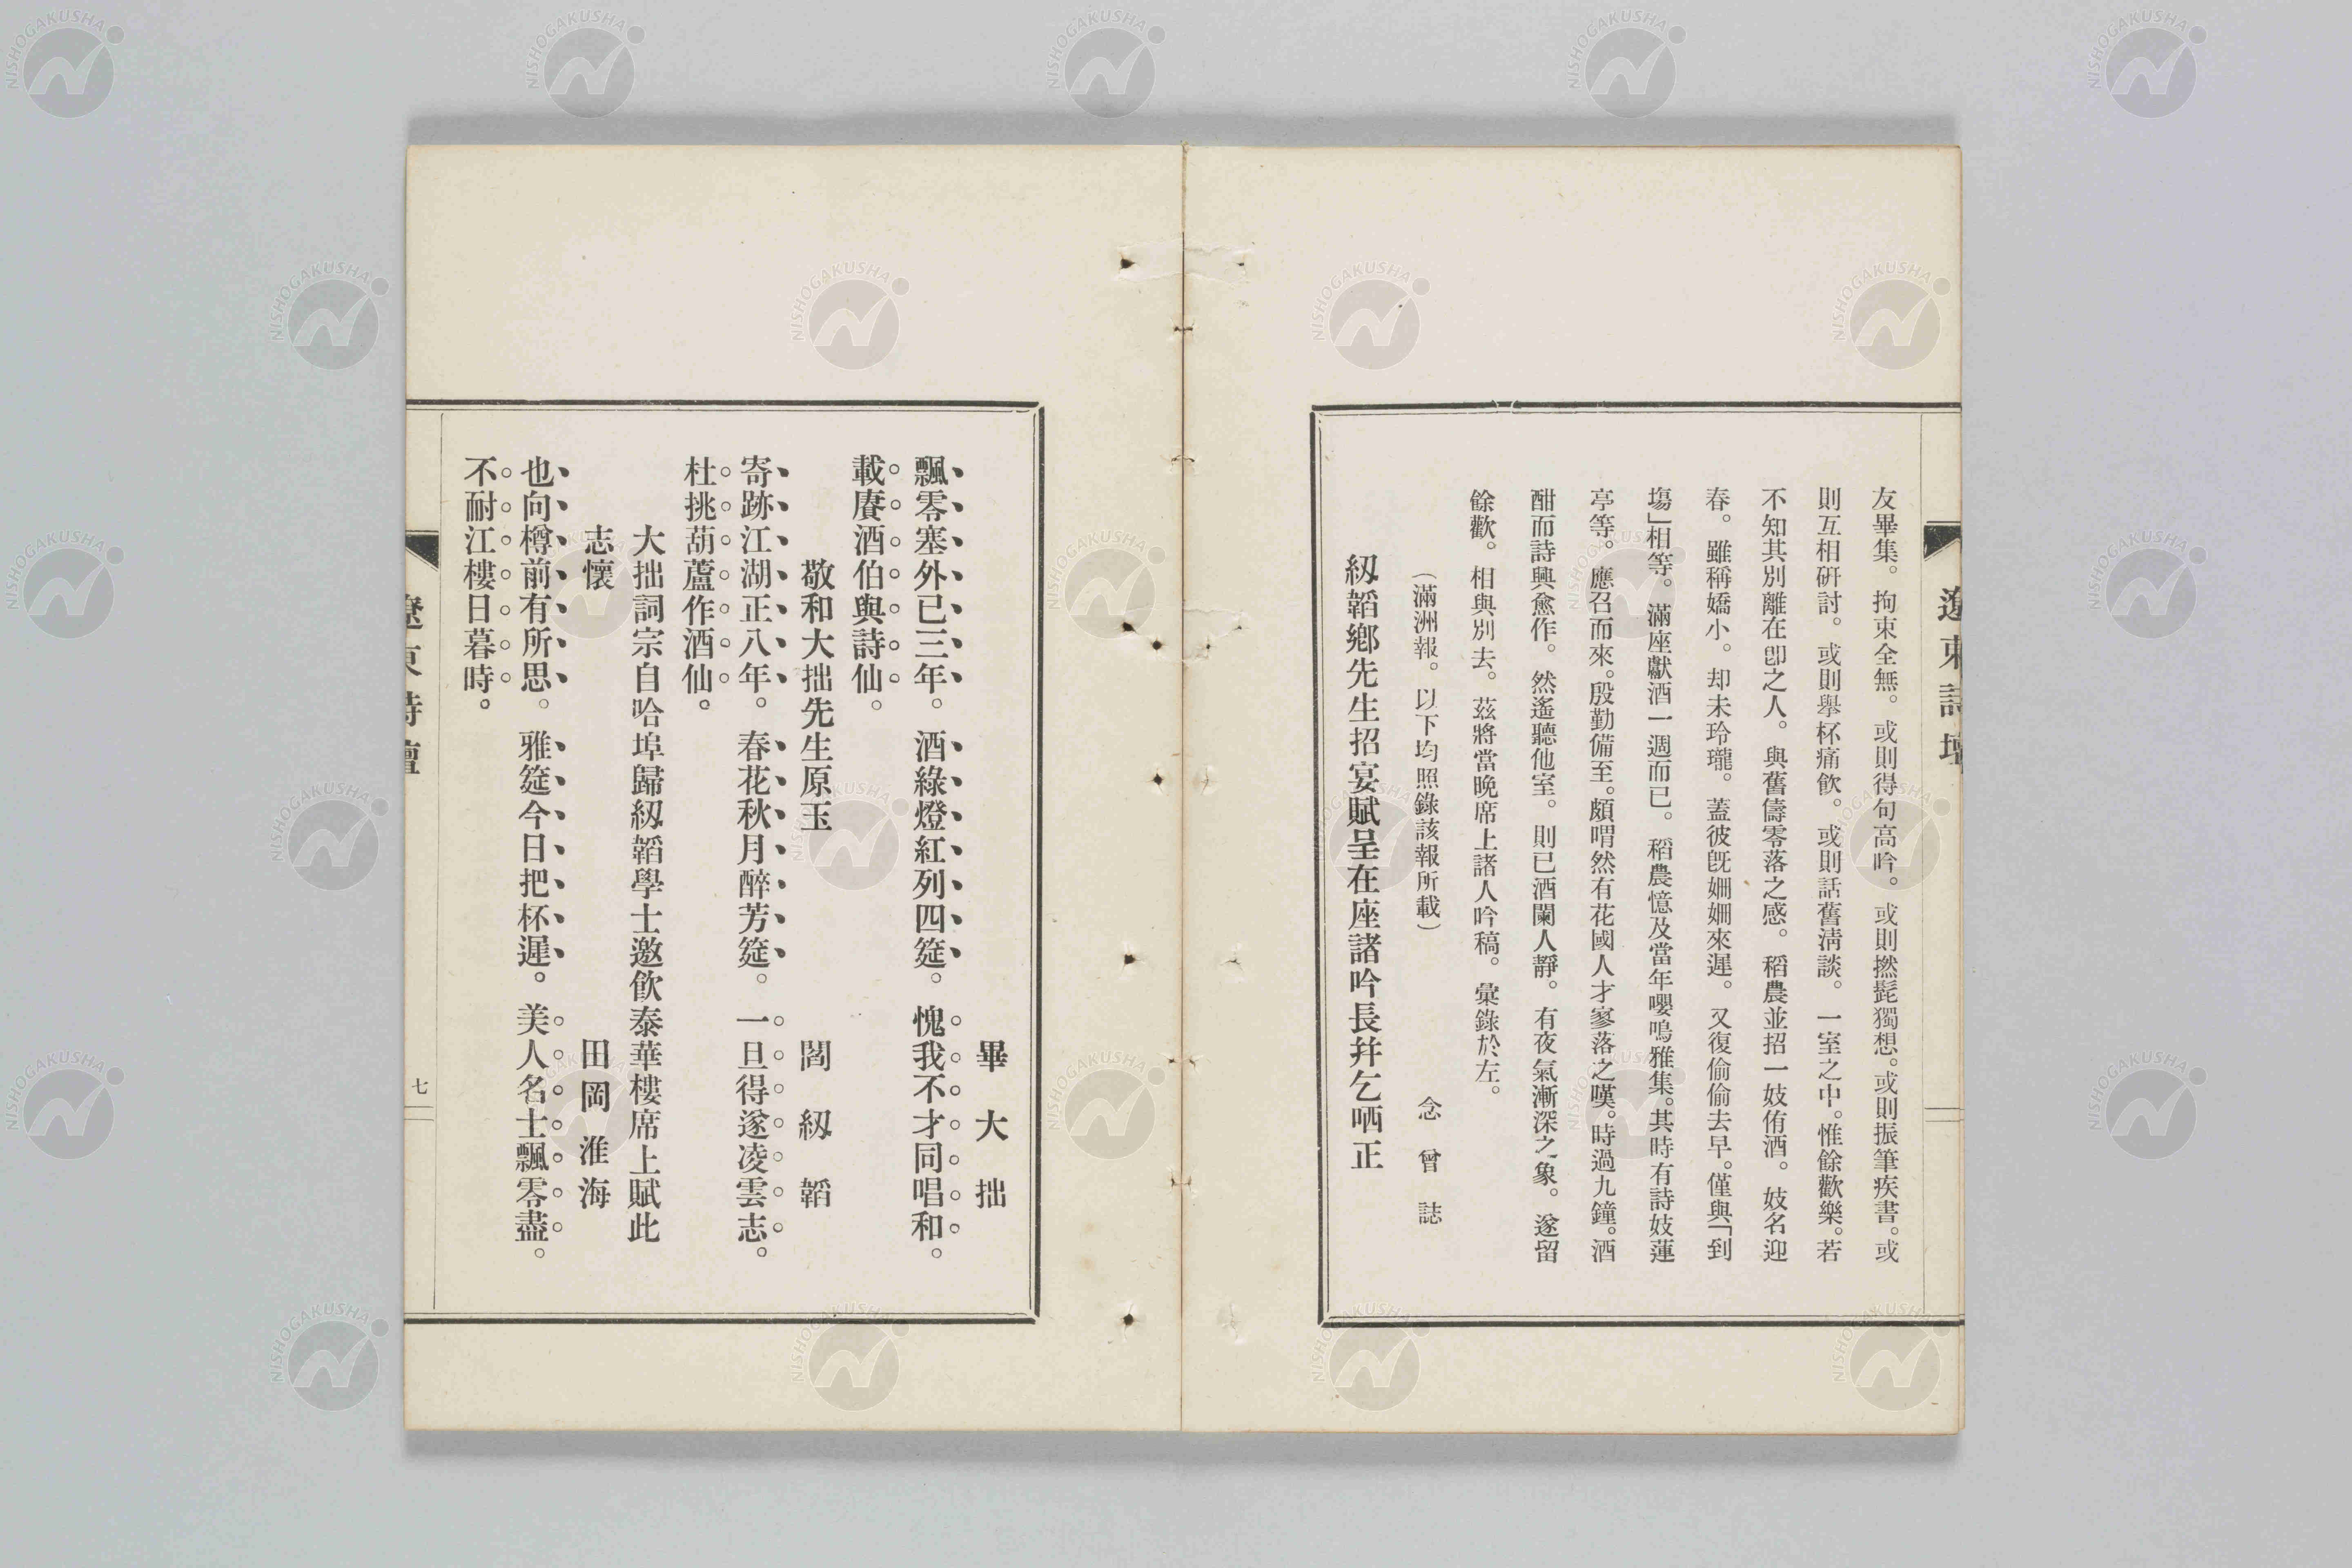 遼東詩壇
友畢集。拘束全無。或則得句高吟。或則撚髭獨想。或則振筆疾書。或
則互相硏討。或則擧杯痛飮。或則話舊淸談。一室之中。惟餘歡樂。若
不知其別離在卽之人。與舊儔零落之感。稻農並招一妓侑酒。妓名迎
春。雖稱嬌小。却未玲瓏。蓋彼旣姍姍來遲。又復偷偷去早。僅與「到
塲」相等。滿座獻酒一週而已。稻農憶及當年嚶鳴雅集。其時有詩妓蓮
亭等。應召而來。殷勤備至。頗喟然有花國人才寥落之嘆。時過九鐘。酒
酣而詩興愈作。然遙聽他室。則已酒闌人靜。有夜氣漸深之象。遂留
餘歡。相與別去。茲將當晚席上諸人吟稿。彙錄於左。
（滿洲報。以下均照錄該報所載）　念曾誌
紉韜鄉先生招宴賦呈在座諸吟長幷乞哂正
畢大拙
飄零塞外已三年。酒綠燈紅列四筵。愧我不才同唱和。
載賡酒伯與詩仙。
敬和大拙先生原玉　閻紉韜
寄跡江湖正八年。春花秋月醉芳筵。一旦得遂凌雲志。
杖挑葫蘆作酒仙。
大拙詞宗自哈埠歸紉韜學士邀飮泰華樓席上賦此
志懷　田岡淮海
也向樽前有所思。雅筵今日把杯遲。美人名士飄零盡。
不耐江樓日暮時。
遼東詩壇
七